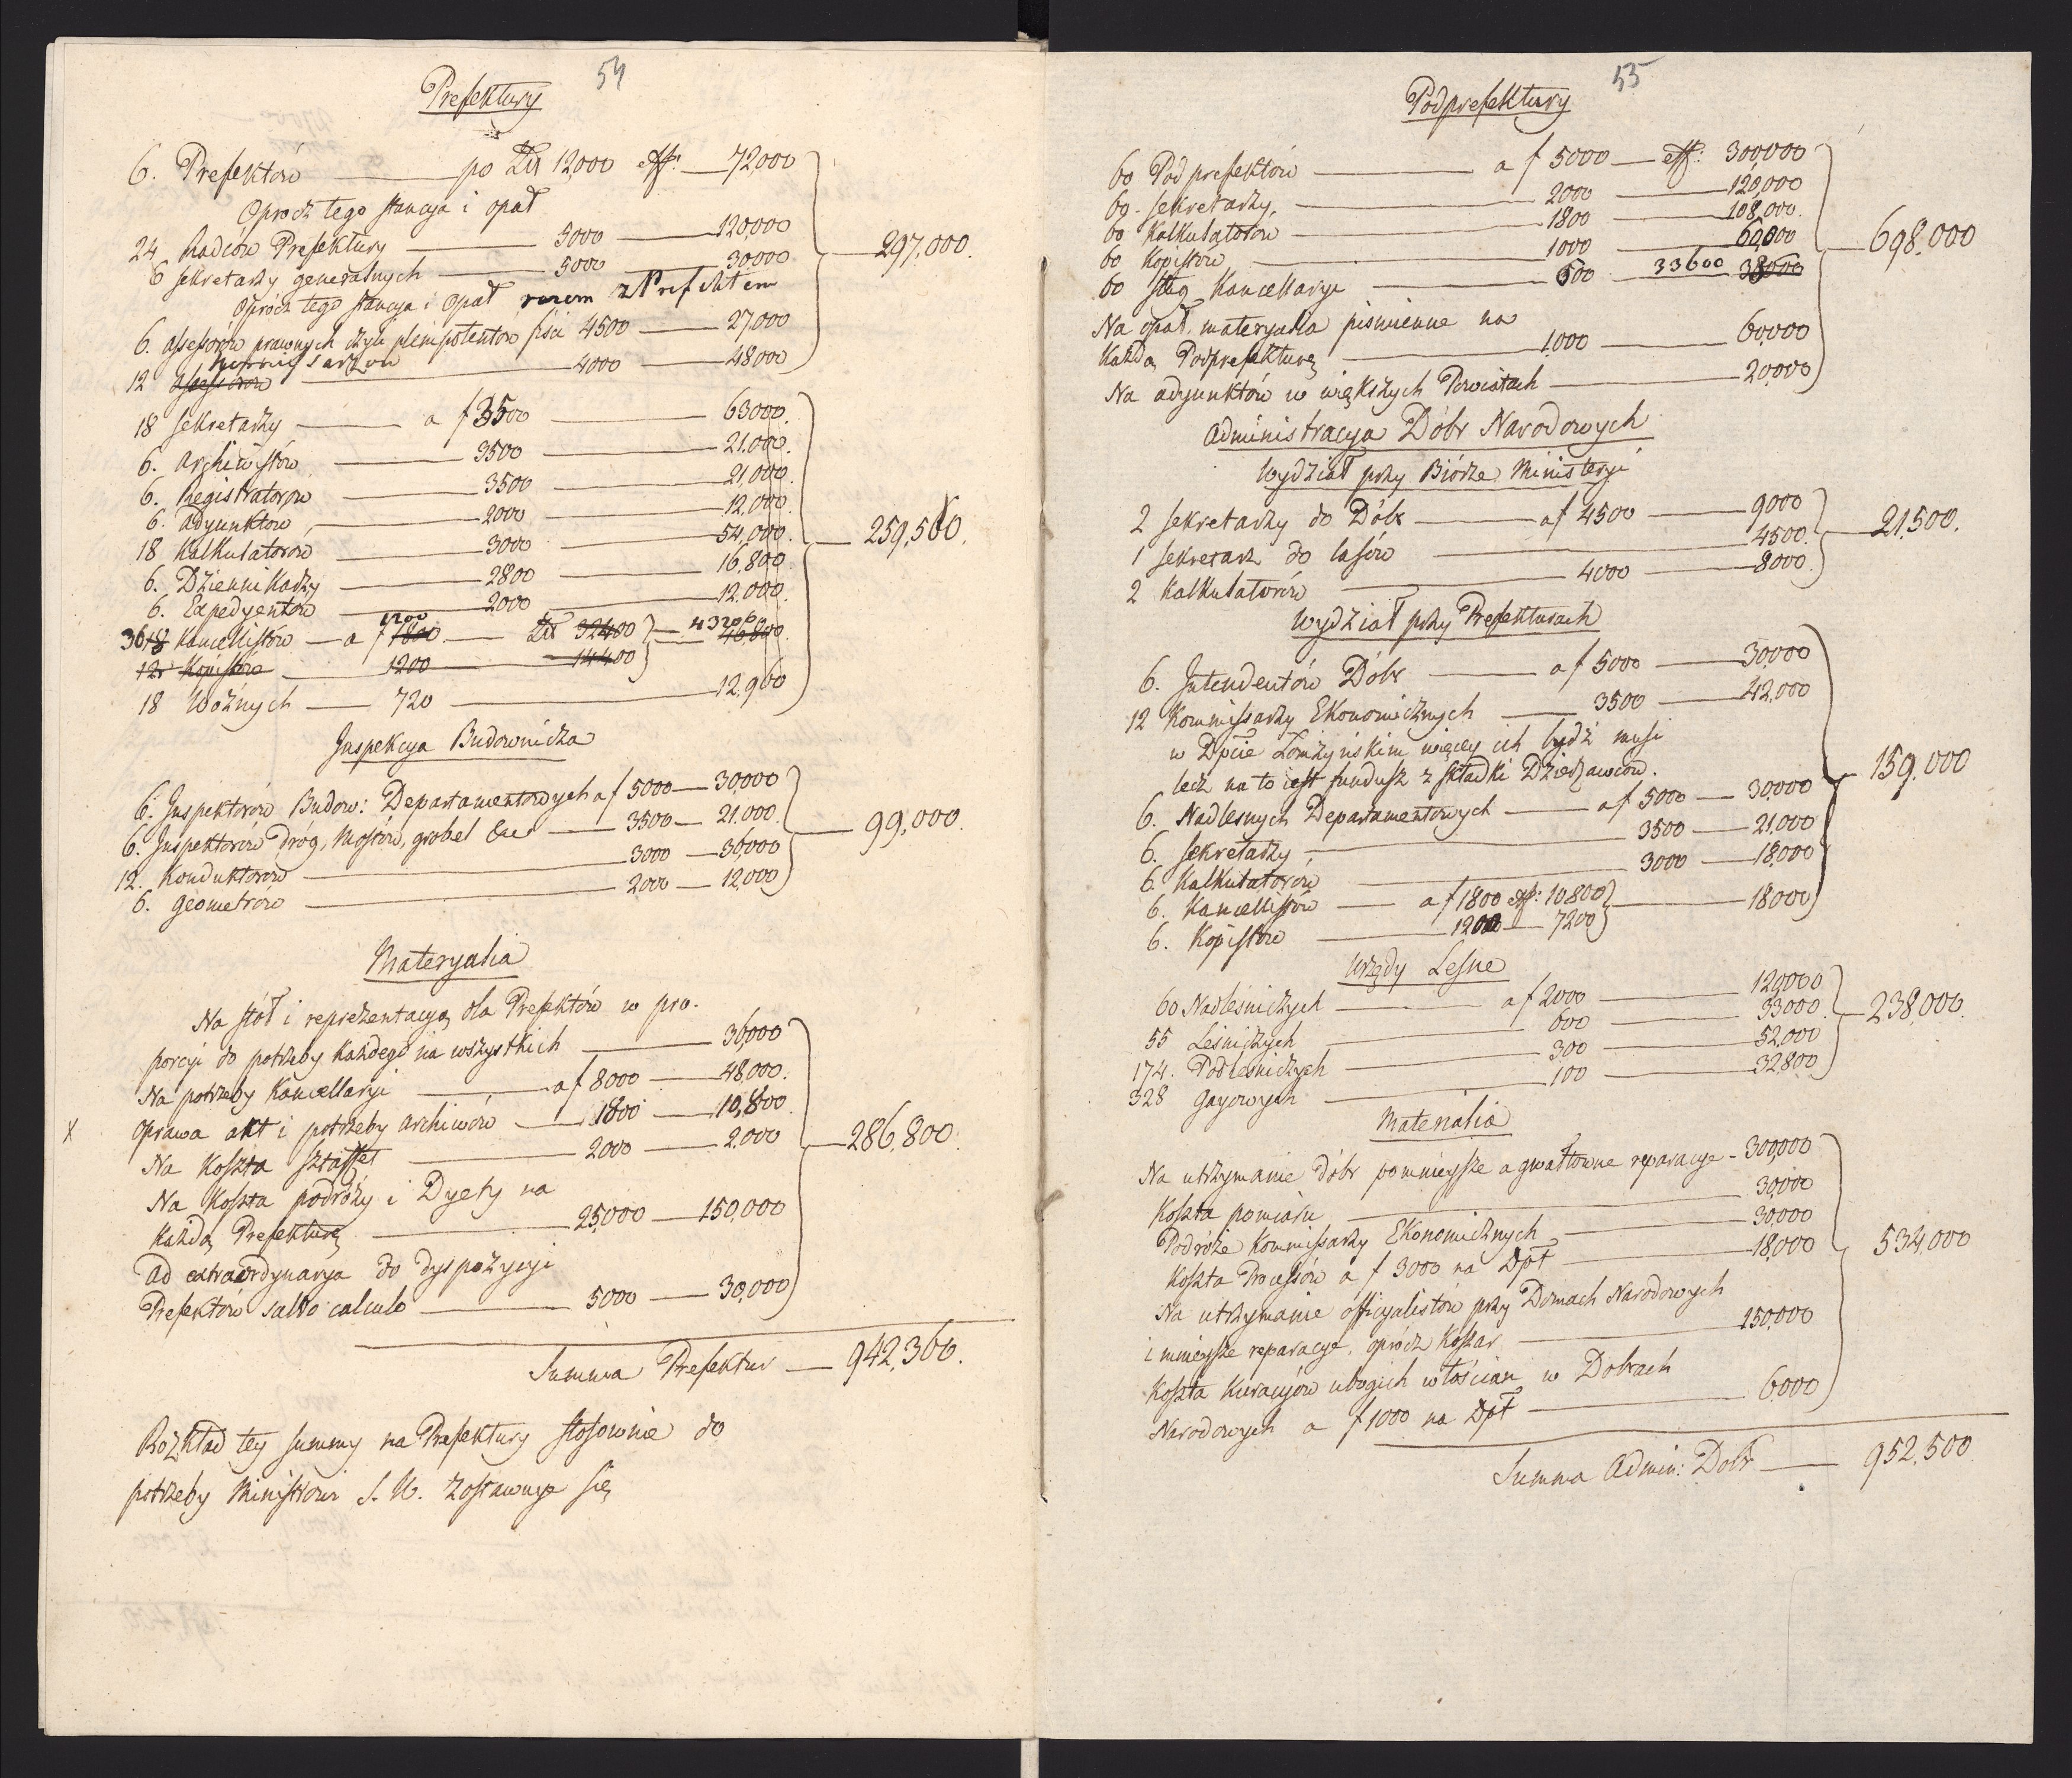 54
Prefektury
6. Prefektów po Złł 12,000 eff: 72,000
Oprócz tego stancya i opał
24 Radców Prefektury 5000 120,000
6 Sekretarzy generalnych 5000 30,000
297,000.
Oprócz tego stancya i opał razem z Prefektem
6. assessorów prawnych czyli plenipotentów fisci 4500 27,000
Kommissarzow
12 assessorow 4000 48,000
18 Sekretarzy a f 3500 63000.
6. Archiwistów 3500 21.000.
6. Registratorów 3500 21,000.
6. adyunktow 2000 12,000.
18 Kalkulatorów 3000 54,000.
259,500.
6. Dziennikarzy 2800 16,800
6. Expedyentów 2000 12.000.
1200
36 18 Kancellistów a f 1800 Złł 32400 43200 46,800.
12 Kopistów 1200 14400
18 Woźnych 720 12,960
Inspekcya Budownicza
6. Inspektorów Budow: Departamentowych a f 5000 30,000
6. Inspektorów Dróg, Mostów, grobel &c 3500 21.000.
99,000.
12. Konduktorów 3000 36,000
6. Geometrów 2000 12,000
Materyalia
Na stół i reprezentacyą dla Prefektów w pro-
porcyi do potrzeby każdego na wszystkich 36,000
Na potrzeby Kancellaryi a f 8000 48,000.
X Oprawa akt i potrzeby archiwów 1800 10,800
Na Koszta sztaffet 2000 2.000
286,800.
Na Koszta podróży i Dyety na
każdą Prefekturę 25,000 150,000
Ad extraordynarya do dyspozycyi
Prefektów salvo calculo 5000 30,000
Summa Prefektur 942,300.
Rozkład tey summy na Prefektury stosownie do
potrzeby Ministrowi S. W. zostawuje się
55
Podprefektury
60 Podprefektów a f 5000 eff: 300,000
60. Sekretarzy, 2000 120,000
60 Kalkulatorów 1800 108,000.
60 Kopistów 1000 60,000
698.000
60 sług Kancellaryi 500 33600 33600
Na opał, materyalia piśmienne na
każdą Podprefekturę 1.000 60,000
Na adyunktów w większych Powiatach 20,000
Administracya Dóbr Narodowych
Wydział przy Biórze Ministeryi
2 Sekretarzy do Dóbr a f 4500 9000
1 Sekretarz do lasów 4500.
21,500.
2 Kalkulatorów 4000 8000.
Wydział przy Prefekturach
6. Intendentów Dóbr a f 5000 30,000
12 Kommissarzy Ekonomicznych 3500 42,000
w Dpcie Łomżyńskim więcey ich bydź musi
lecz na to iest fundusz z składki Dzierżawców.
159.000
6. Nadleśnych Departamentowych a f 5000 30,000
6. Sekretarzy 3500 21,000
6. Kalkulatorów 3000 18,000
6. Kancellistów a f 1800 eff: 10800
18000
6. Kopistów 1200 7200
Urzędy Leśne
60 Nadleśniczych a f 2000 120,000
55 Leśniczych 600 33000.
238,000.
174. Podleśniczych 300 52,000
328 Gajowych 100 32800
Materialia
Na utrzymanie Dóbr pomnieysze a gwałtowne reparacye - 300,000
Koszta pomiaru 30,000
Podróże Kommissarzy Ekonomicznych 30,000
Koszta Processów a f 3000 na Dpt 18,000
534,000
Na utrzymanie officyalistów przy Domach Narodowych
i mnieysze reparacye, oprócz Koszar 150,000
Koszta Kuracyów ubogich włościan w Dobrach
Narodowych a f 1000 na Dpt 6000
Summa Admin: Dóbr 952,500